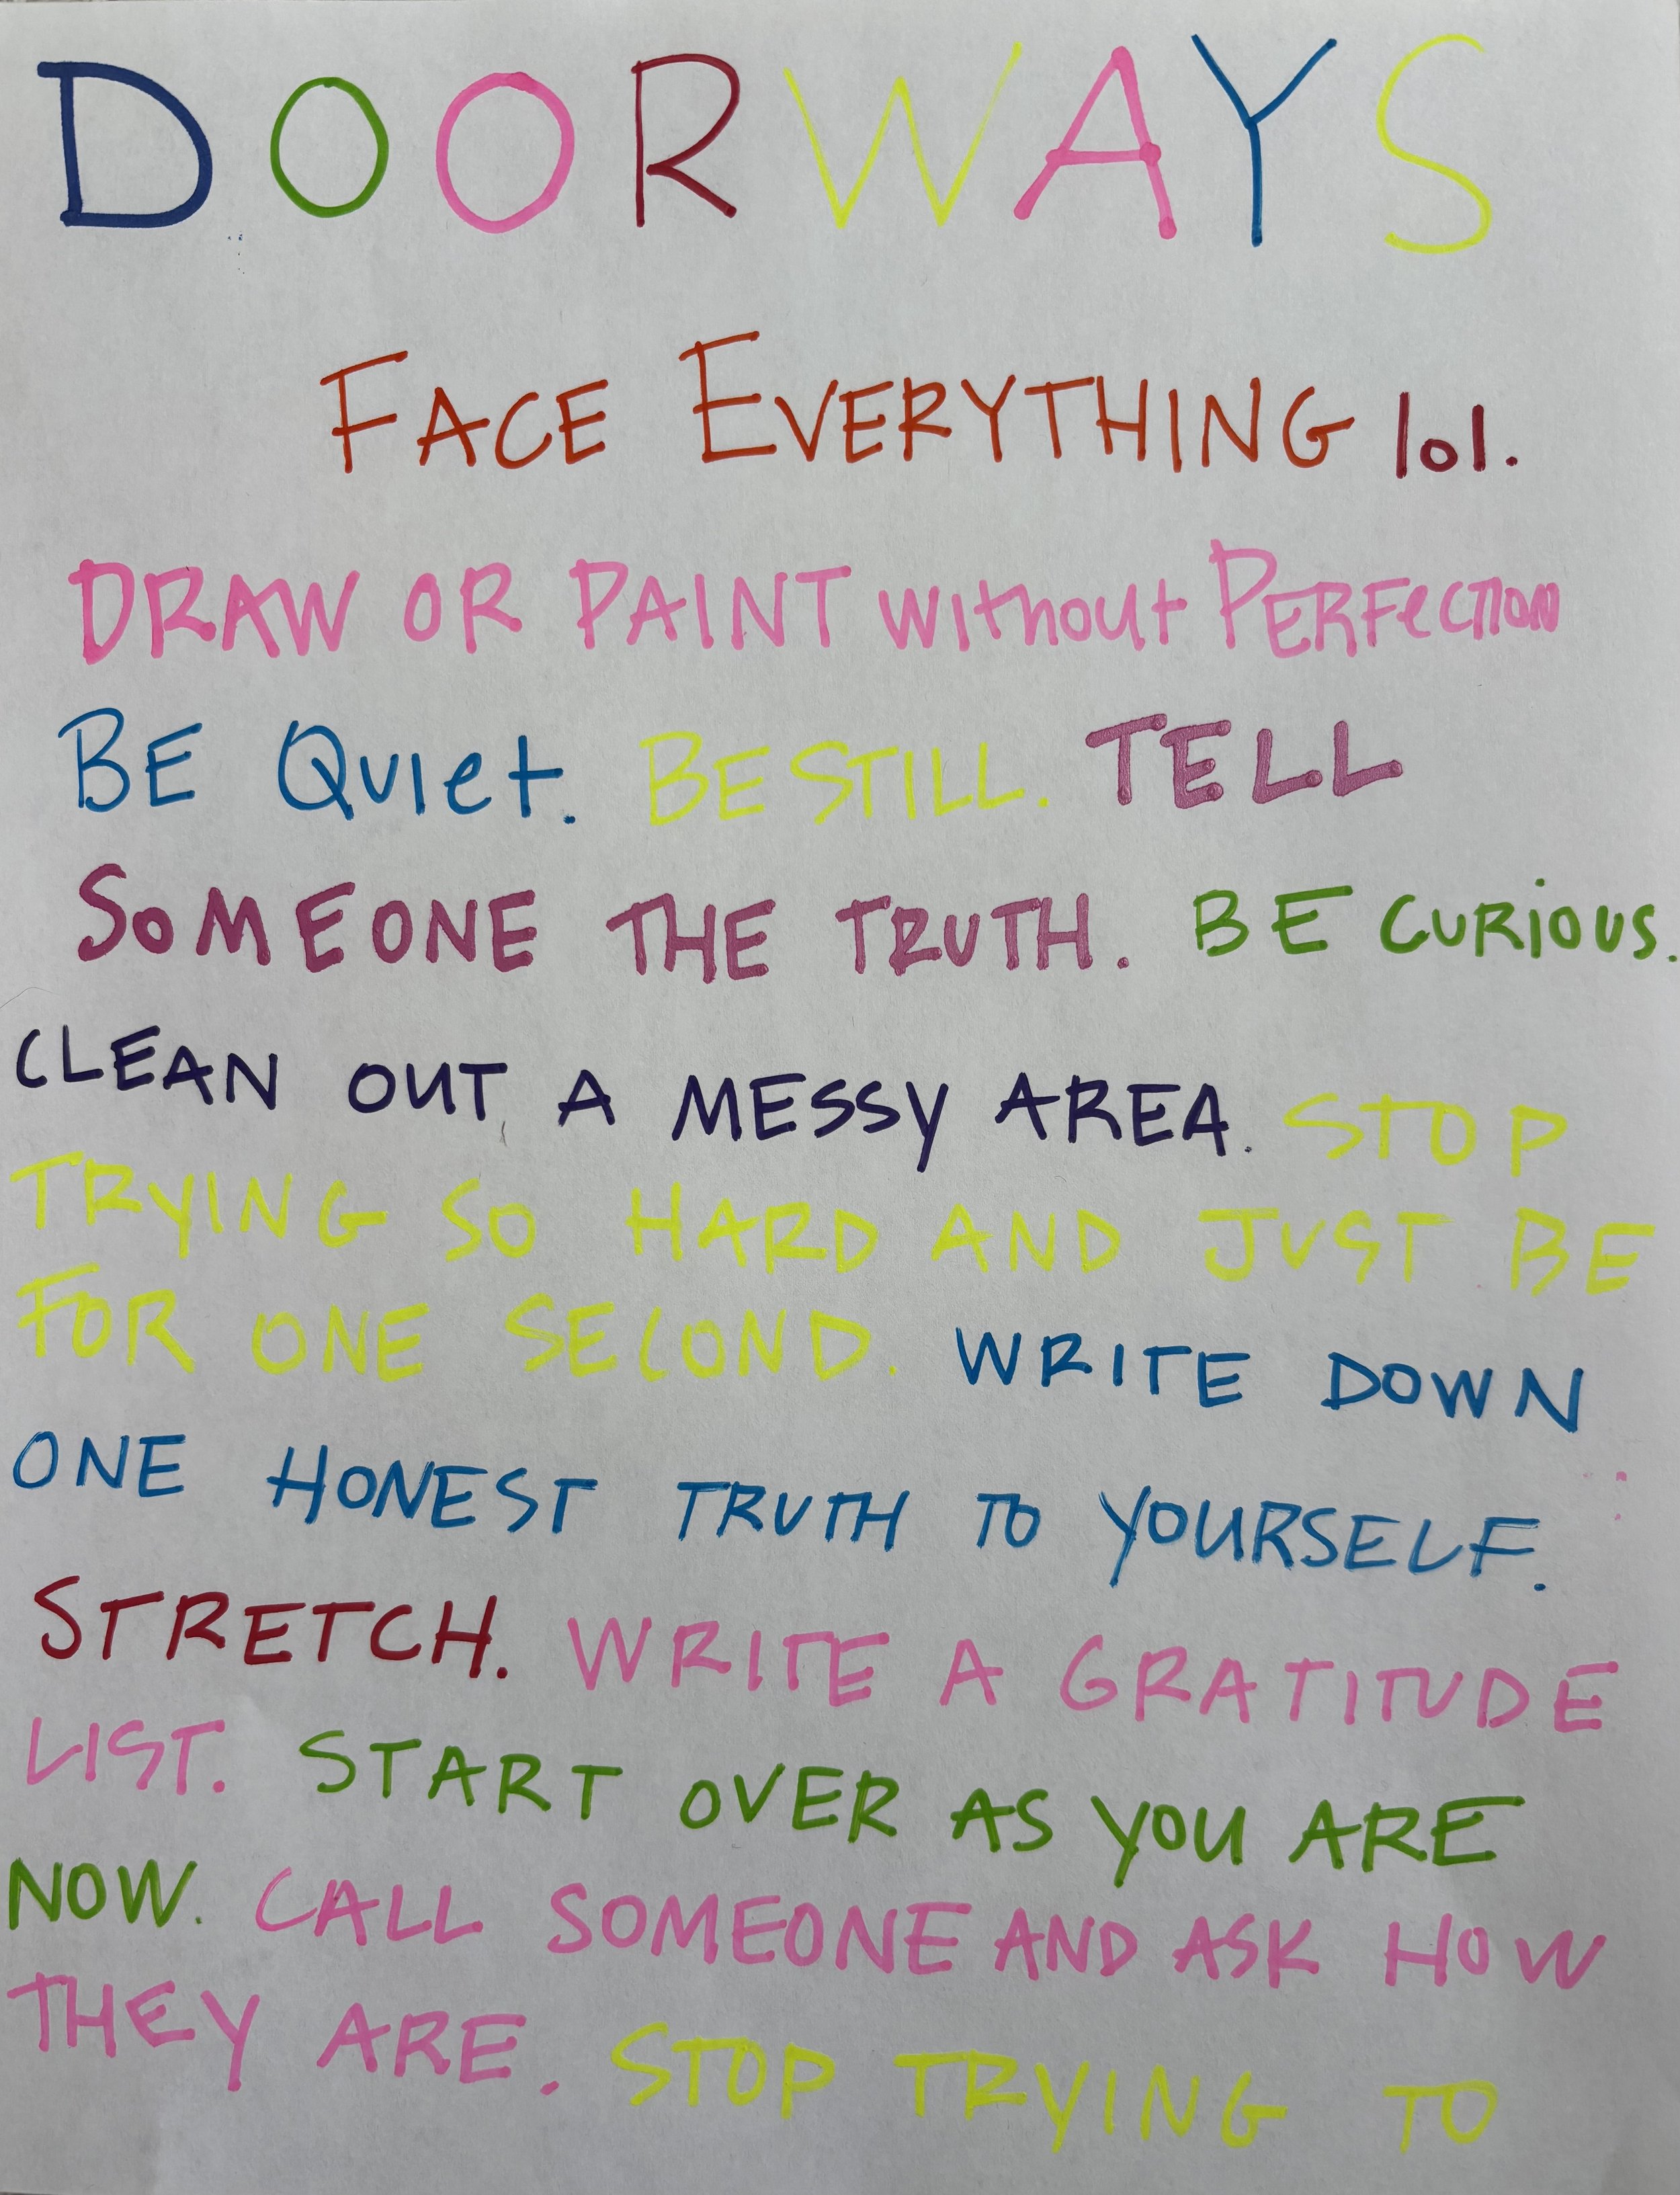 DOORWAYS
FACE EVERYTHING lol.
DRAW OR PAINT without PERFeCTION
BE Quiet. BE STILL. TELL
SoMEONE THE TRUTH. BE CURiOUS.
CLEAN OUT A MESSY AREA. STOP
TRYING SO HARD AND JUST BE
FOR ONE SECOND. WRITE DOWN
ONE HONEST TRUTH TO YOURSELF.
STRETCH. WRITE A GRATITUDE
LIST. START OVER AS YOU ARE
NOW. CALL SOMEONE AND ASK HOW
THEY ARE. STOP TRYING TO